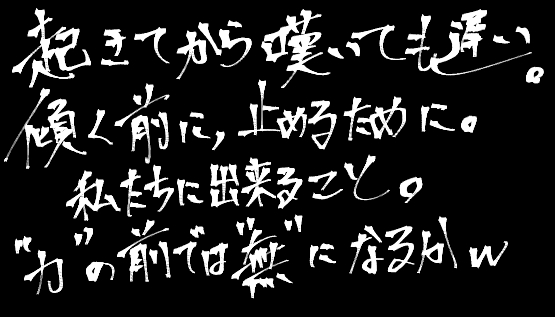 起きてから嘆いても遅い。
傾く前に,止めるために。
私たちに出来ること。
"力"の前では"無"になるかw